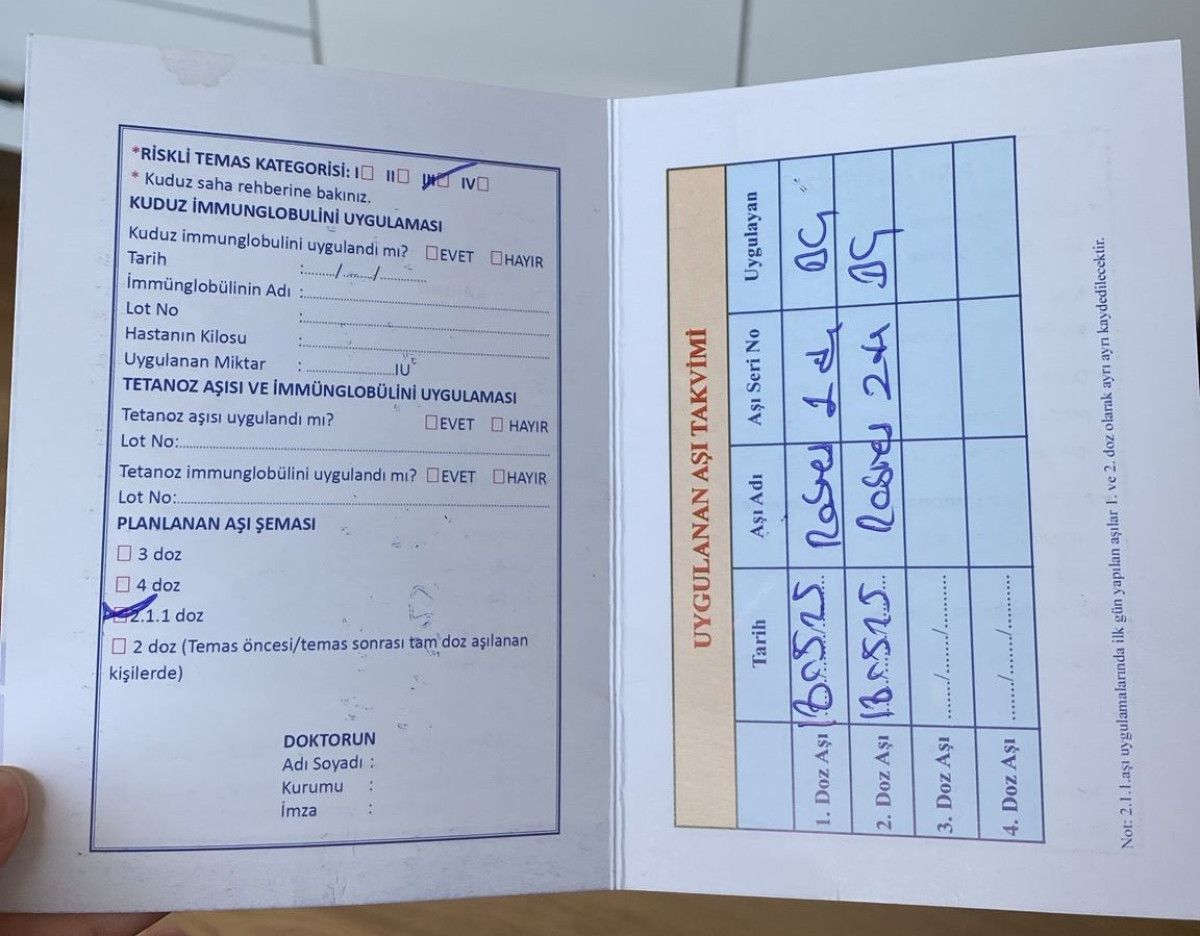 *RİSKLİ TEMAS KATEGORİSİ: I□ II□ III□ IV□
* Kuduz saha rehberine bakınız.
KUDUZ İMMUNGLOBULİNİ UYGULAMASI
Kuduz immunglobulini uygulandı mı? □EVET □HAYIR
Tarih :......../......../............
İmmünglobülinin Adı :
Lot No :
Hastanın Kilosu :
Uygulanan Miktar :........................IU
TETANOZ AŞISI VE İMMÜNGLOBÜLİNİ UYGULAMASI
Tetanoz aşısı uygulandı mı? □EVET □ HAYIR
Lot No:
Tetanoz immunglobülini uygulandı mı? □EVET □HAYIR
Lot No:
PLANLANAN AŞI ŞEMASI
□ 3 doz
□ 4 doz
□ 2.1.1 doz
□ 2 doz (Temas öncesi/temas sonrası tam doz aşılanan
kişilerde)
DOKTORUN
Adı Soyadı :
Kurumu :
İmza :
UYGULANAN AŞI TAKVİMİ
Tarih Aşı Adı Aşı Seri No Uygulayan
1. Doz Aşı
2. Doz Aşı
3. Doz Aşı ....../....../............
4. Doz Aşı ....../....../............
Not: 2.1.1.aşı uygulamalarında ilk gün yapılan aşılar 1. ve 2. doz olarak ayrı ayrı kaydedilecektir.